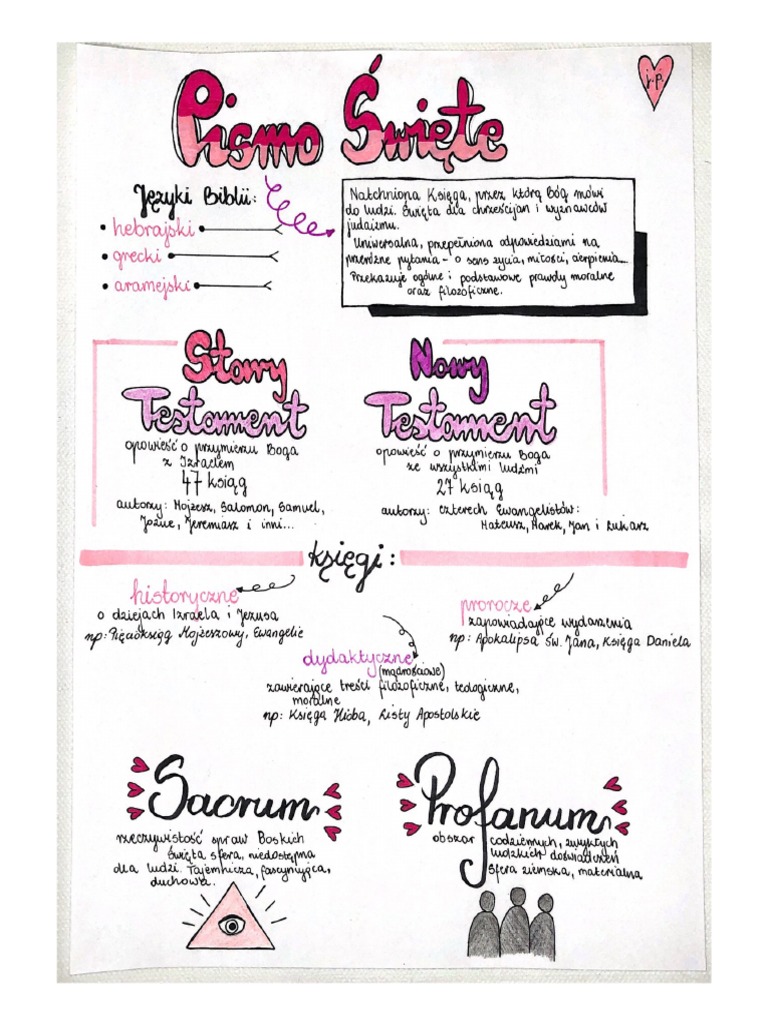 Pismo Święte
j.p.
Języki Biblii:
• hebrajski
• grecki
• aramejski
Natchniona Księga, przez którą Bóg mówi
do ludzi. Święta dla chrześcijan i wyznawców
judaizmu.
Uniwersalna, przepełniona odpowiedziami na
przeróżne pytania - o sens życia, miłości, cierpienia...
Przekazuje ogólne i podstawowe prawdy moralne
oraz filozoficzne.
Stary
Testament
opowieść o przymierzu Boga
z Izraelem
47 ksiąg
autorzy: Mojżesz, Salomon, Samuel,
Jozue, Jeremiasz i inni...
Nowy
Testament
opowieść o przymierzu Boga
ze wszystkimi ludźmi
27 ksiąg
autorzy: czterech Ewangelistów:
Mateusz, Marek, Jan i Łukasz
księgi:
historyczne
o dziejach Izraela i Jezusa
np: Pięcioksiąg Mojżeszowy, Ewangelie
prorocze
zapowiadające wydarzenia
np: Apokalipsa św. Jana, Księga Daniela
dydaktyczne
(mądrościowe)
zawierające treści filozoficzne, teologiczne,
moralne
np: Księga Hioba, Listy Apostolskie
Sacrum
rzeczywistość spraw Boskich
święta sfera, niedostępna
dla ludzi. Tajemnicza, fascynująca,
duchowa.
Profanum
obszar codziennych, zwykłych
ludzkich doświadczeń
sfera ziemska, materialna